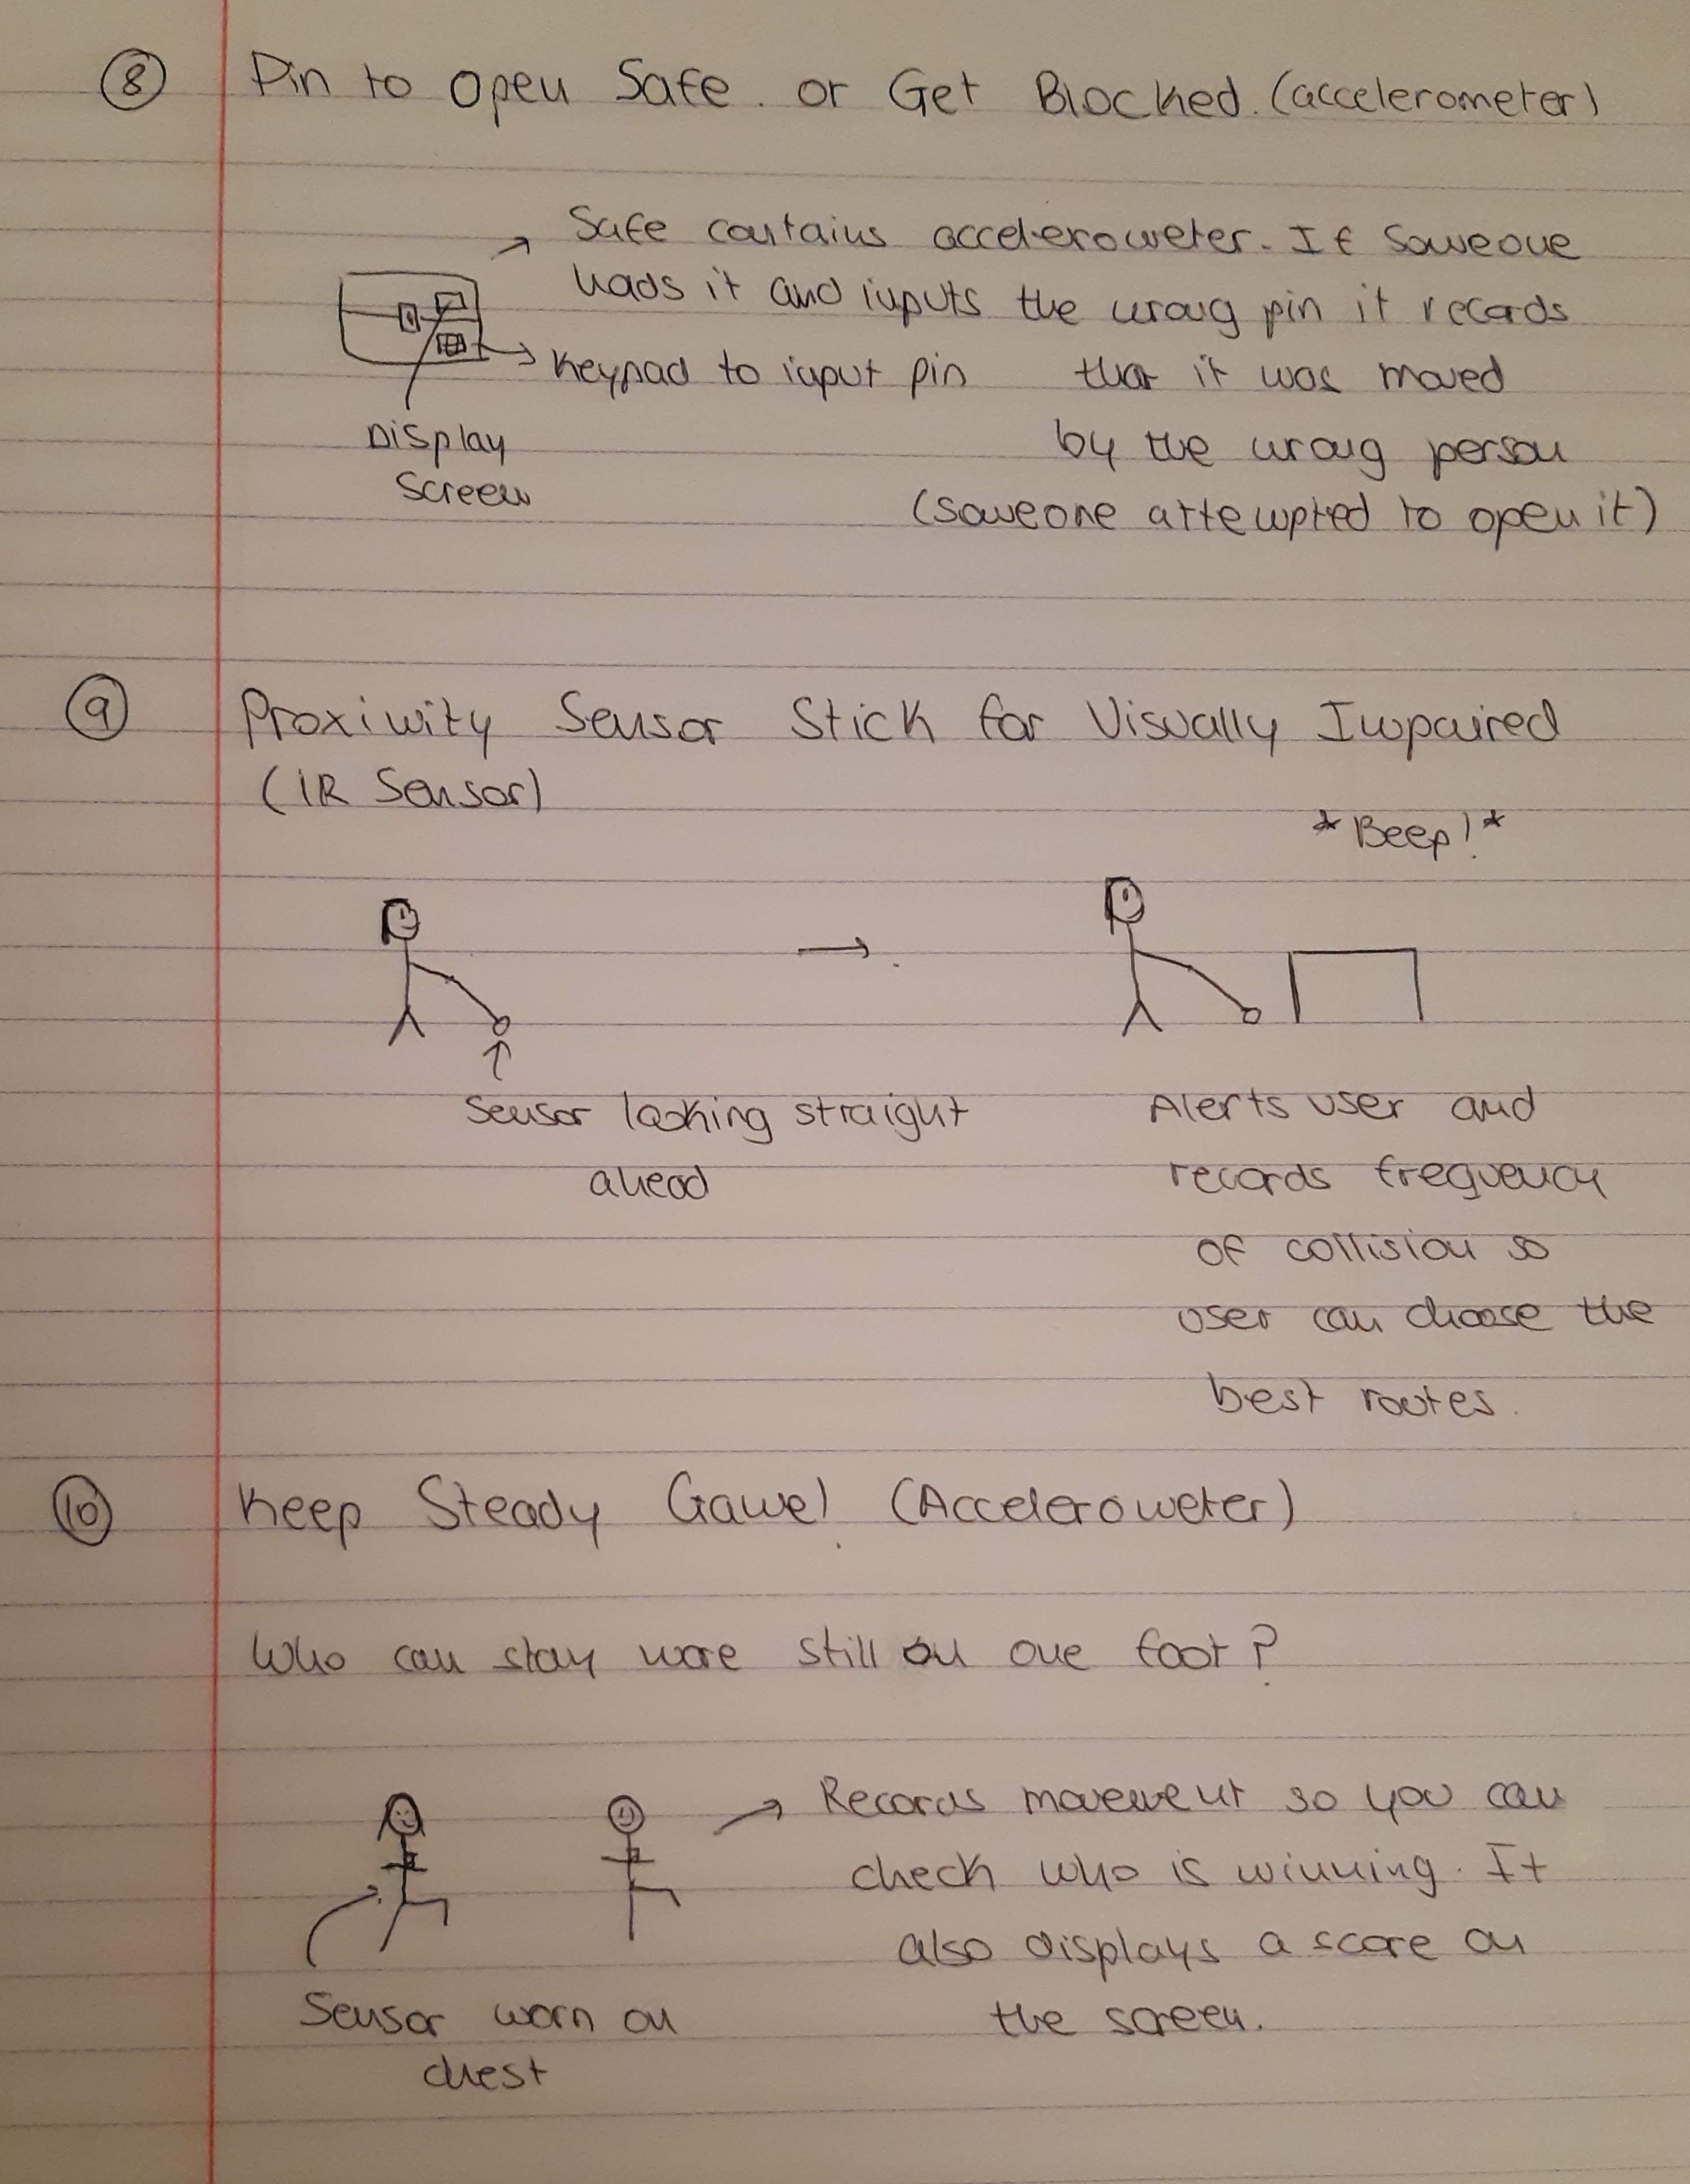 8 Pin to Open Safe. or Get Blocked. (accelerometer)
Safe contains accelerometer. If someone
it and inputs the wrong pin it records
Keypad to input pin that it was moved
Display by the wrong person
Screen (someone attempted to open it)
9 Proximity Sensor Stick for Visually Impaired
(IR Sensor)
*Beep!*
Sensor looking straight Alerts user and
ahead records frequency
of collision so
user can choose the
best routes.
10 Keep Steady Game! (Accelerometer)
Who can stay more still on one foot?
Records movement so you can
check who is winning. It
also displays a score on
Sensor worn on the screen.
chest